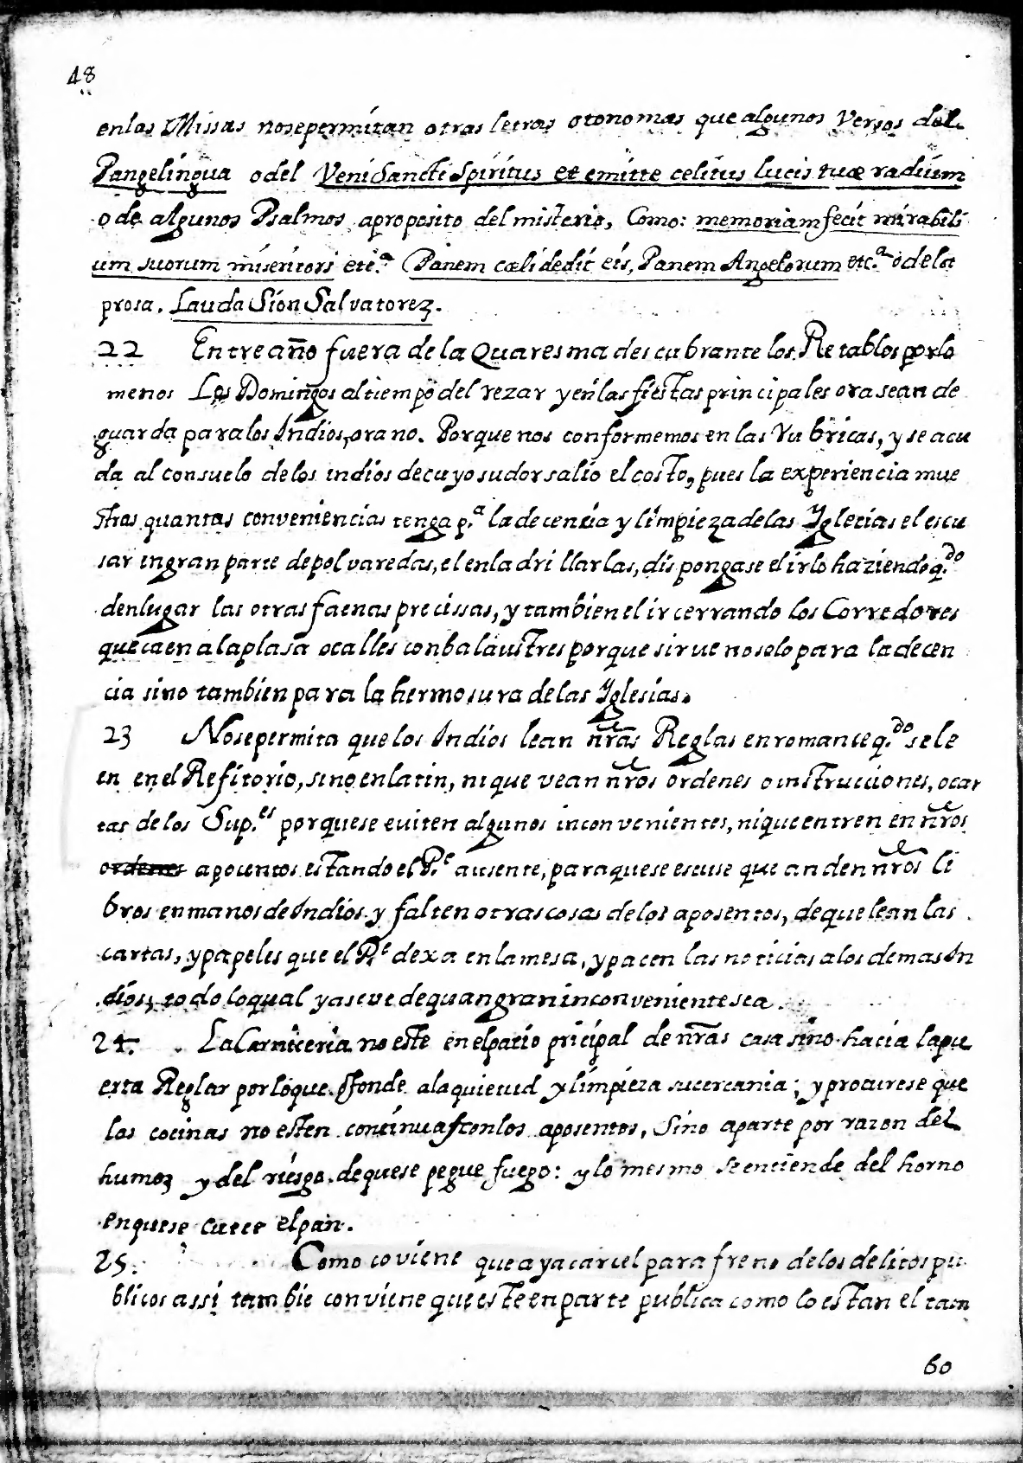 48
enlas Missas nosepermitan otras letras otonomas que algunos Versos del
Pangelingua odel Veni Sancte Spiritus et emitte celitus lucis tuæ radium
o de algunos Psalmos aproposito del misterio, Como: memoriam fecit mirabili
um suorum miseritors etc.ª Panem cœli dedit eis, Panem Angelorum etc.ª o dela
prosa. Lauda Sion Salvatorez.
22 Entreaño fuera de la Quaresma descubrante los Retablos porlo
menos Los Domingos altiempo del rezar y enlas fiestas principales ora sean de
guarda paralos Indios, orano. Porque nos conformemos en las Rubricas, y se acu
da al consuelo delos indios decuyo sudor salio el costo, pues la experiencia mue
stras quantas conveniencias tenga p.ª la decencia y limpieza delas Iglecias el escu
sar ingran parte depolvaredas, el enladrillarlas, dispongase el irlo haziendo q.do
denlugar las otras faenas precissas, y tambien el ir cerrando los Corredores
que caen alaplasa ocalles conbalaustres porque sirue nosolo para ladecen
cia sino tambien para la hermosura delas Iglesias.
23 Nosepermita que los Indios lean ñras Reglas enromance q.do sele
en enel Refitorio, sino enlatin, nique vean ñros ordenes o instrucciones, ocar
tas delos Sup.es porquese euiten algunos inconvenientes, nique entren en ñros
ordenes apocentos estando el P.e ausente, paraquese escuse que anden ñros li
bros enmanos de Indios y falten otras cosas delos aposentos, de que lean las
cartas, ypapeles que el P.e dexa enlamesa, ypacen las noticias alos demas In
dios, todo loqual yaseve dequangran inconveniente sea.
24. La Carniceria no este enelpatio pricipal de ñras casa sino hacia lapu
erta Reglar por loque ofonde alaquietud y limpieza sucercania; y procurese que
las cocinas no esten continuas conlos aposentos, Sino aparte por razon del
humoz y del riesgo dequese pegue fuego: y lo mesmo se entiende del horno
enquese cuece elpan.
25. Como coviene que aya carcel para freno delos delitos pu
blicos assi tambie conviene que este en parte publica como lo estan el tam
60